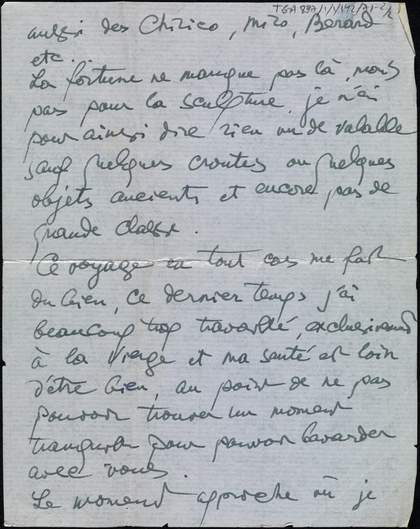 TGA 897/1/1/142/21-2/2
aussi des Chirico, Miro, Berard
etc.
La fortune ne manque pas là, mais
pas pour la sculpture, je n'ai
pour ainsi dire rien vu de valable
sauf quelques croutes ou quelques
objets ancients et encore pas de
grande classe.
Ce voyage en tout cas me fait
du bien, ce dernier temps j'ai
beaucoup trop travaillé, exclusivement
à la Vierge et ma santé est loin
d'être bien, au point de ne pas
pouvoir trouver un moment
tranquille pour pouvoir bavarder
avec vous.
Le moment approche où je